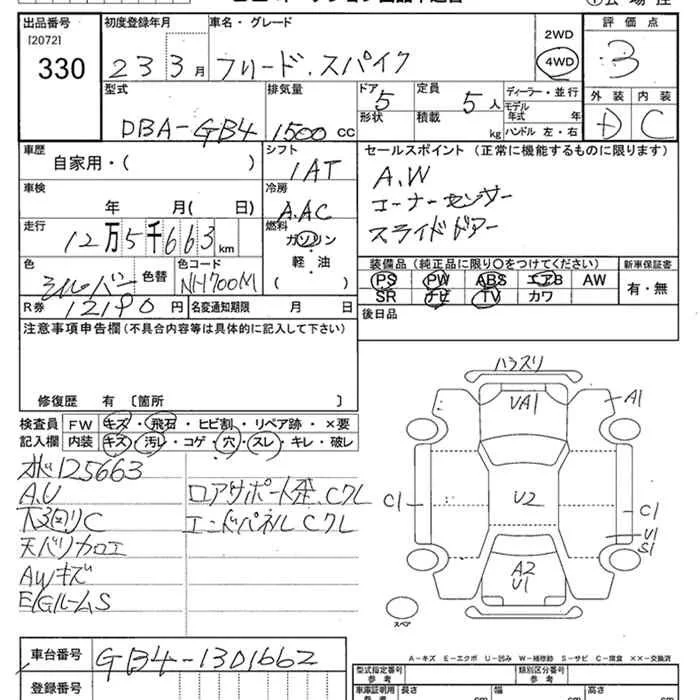 出品番号
[2072]
330
初度登録年月
23 3月
車名・グレード
フリード.スパイク
2WD
4WD
評価点
3
型式
DBA-GB4
排気量
1500 cc
ドア
5
形状
定員
5人
積載
kg
ディーラー・並行
モデル年式 年
ハンドル 左・右
外装
D
内装
C
車歴
自家用・( )
シフト
IAT
セールスポイント (正常に機能するものに限ります)
A.W
コーナーセンサー
スライドドアー
車検
年 月( 日)
冷房
A.AC
走行
12万5千663km
燃料
ガソリン
軽・油
( )
色
シルバー
色替
色コード
NH700M
装備品(純正品に限り○をつけてください)
PS PW ABS エアB AW
SR ナビ TV カワ
新車保証書
有・無
R券
12190円
名変通知期限 月 日
後日品
注意事項申告欄(不具合内容等は具体的に記入して下さい)
修復歴 有〔箇所 〕
検査員
記入欄
FW キズ・飛石・ヒビ割・リペア跡・×要
内装 キズ・汚レ・コゲ・穴・スレ・キレ・破レ
125663
A.U
C
天バリカロエ
AWキズ
E/GルームS
ロアサポート歪.Cクレ
エンドパネルCクレ
ハラスリ
UA1
A1
C1
U2
C1
U1
S1
A2
U1
スペア
A-キズ E-エクボ U-凹み W-補修跡 S-サビ C-腐食 ××-交換済
車台番号
GB4-1301662
登録番号
型式指定番号
参考
類別区分番号
参考
車庫証明用
参考
長さ
cm
幅
cm
高さ
cm